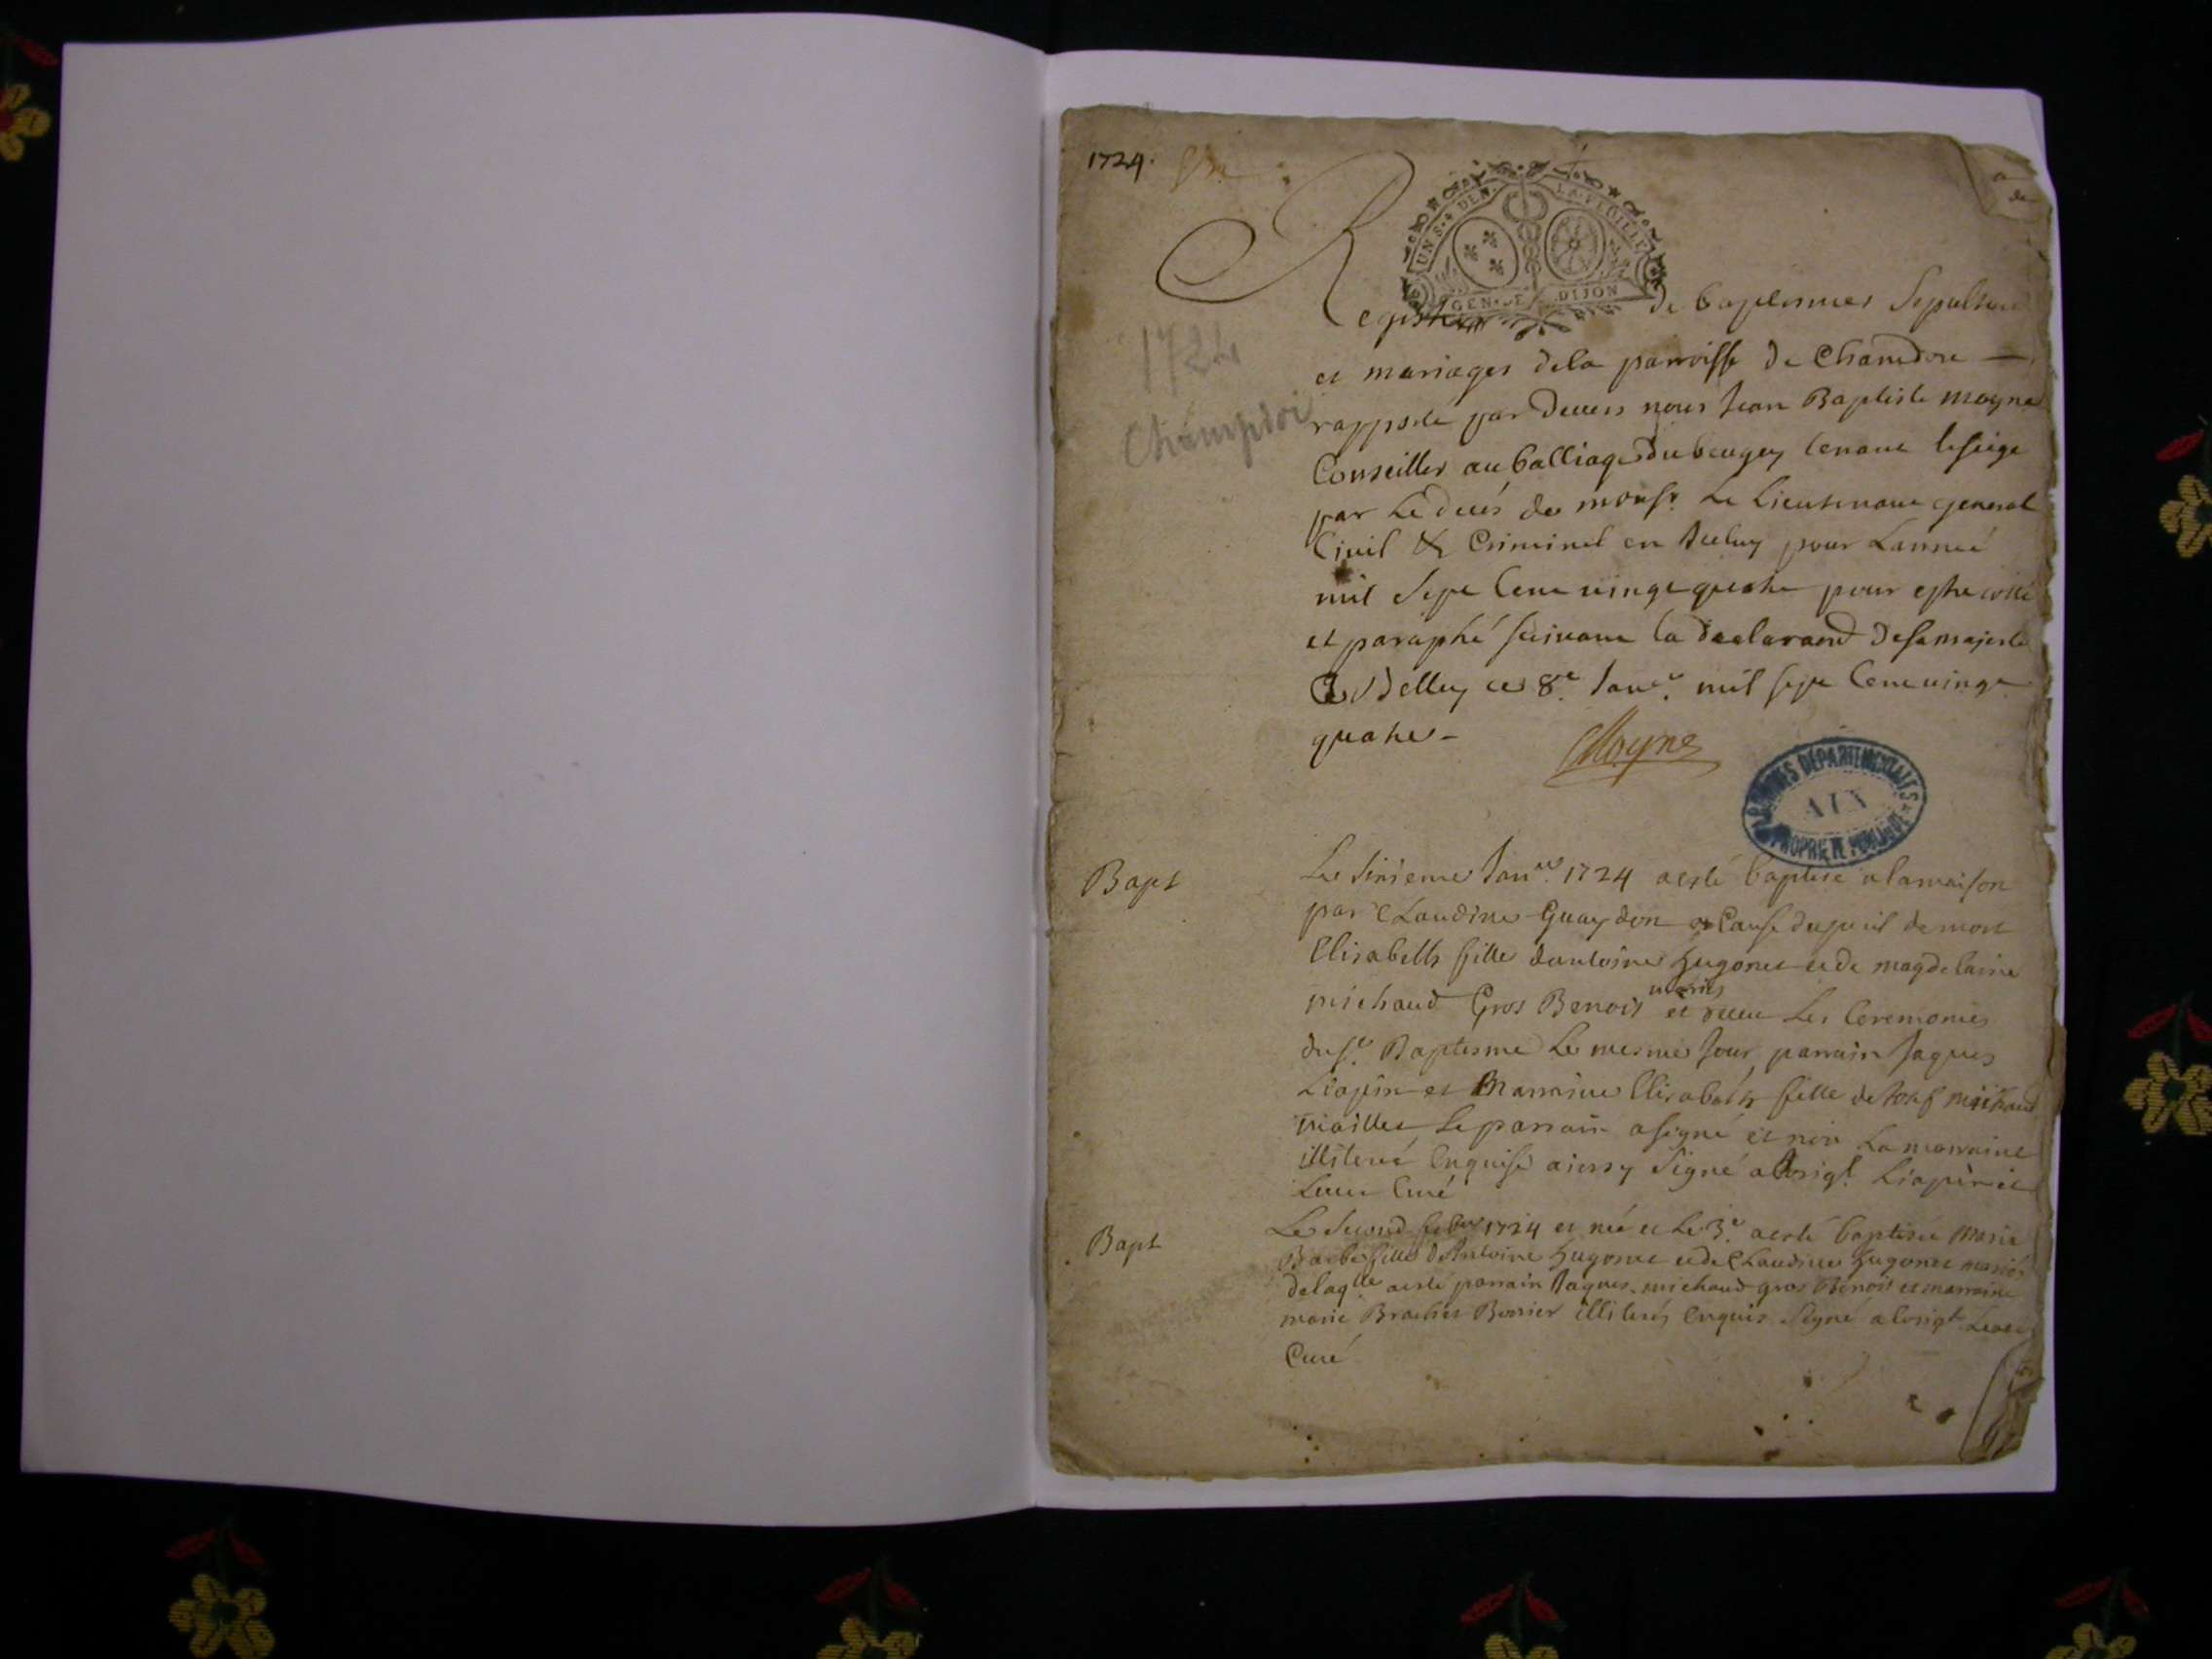 1724.
UN S. 4 DEN. LA FEUILLE
GEN. DE DIJON
Registre de baptesmes Sepulture
et mariages dela parroisse de Chamdore
rapporté par devers nous Jean Baptiste Moyne
Conseiller au balliage du beugey tenant le siege
par Le decés de mons.r Le Lieutenant general
Civil & Criminel en iceluy pour Lanneé
mil Sept Cent vingt quatre pour estre cotté
et paraphé suivant la declara.on de sa majesté
A Belley ce 8.e Janv.r mil sept Cent vingt
quatre -
Moyne
1724
Champdor
ARCHIVES DÉPARTEMENTALES
AIN
PROPRIÉTÉ PUBLIQUE
Bapt
Le sixieme Janv.er 1724 a esté baptisé a la maison
par Claudine Guaydon a Cause du peril de mort
Elisabeth fille dantoine hugonet et de magdelaine
michaud Gros Benoit mariés et receu Les Ceremonies
du s.t Baptesme Le mesme Jour parrain Jaques
Liapin et Marraine Elisabeth fille de Josef michaud
maillet Le parrain a signé et non La marraine
illiteré Enquise ainsy Signé a Lorig.l Liapin et
curé
Bapt
Le second 1724 est né et Le 3.e a esté baptisée Marie
Barbe fille d'Antoine hugonet et de Claudine hugonet mariés
de laq.lle a esté parrain Jaques michaud gros Benoit et marraine
marie Brachet Borrier illiterés Enquis Signé a Lorig.l
Curé